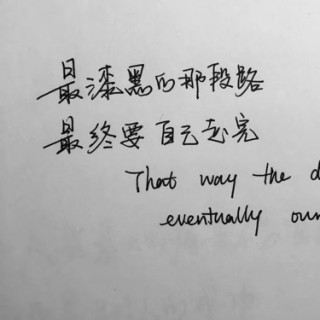 最漆黑的那段路
最终要自己走完
That way the d
eventually our